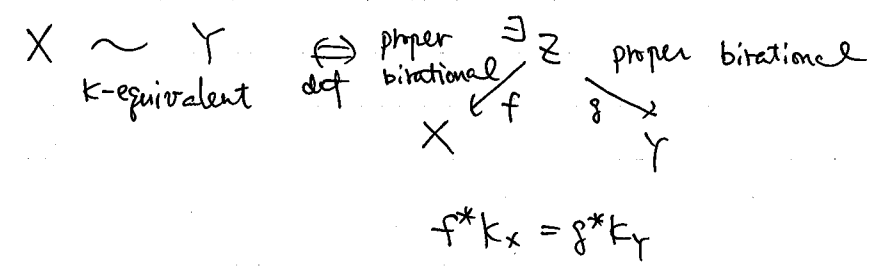 X ~ Y ⇔ proper ∃Z proper birational
K-equivalent def birational f g
X Y
f*K_X = g*K_Y